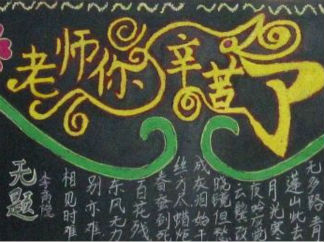 老师你辛苦了
无题
李商隐
相见时难
别亦难
东风无力
百花残
春蚕到死
丝方尽蜡炬
成灰泪始干
晓镜但愁
云鬓改
夜吟应觉
月光寒
蓬山此去
无多路青